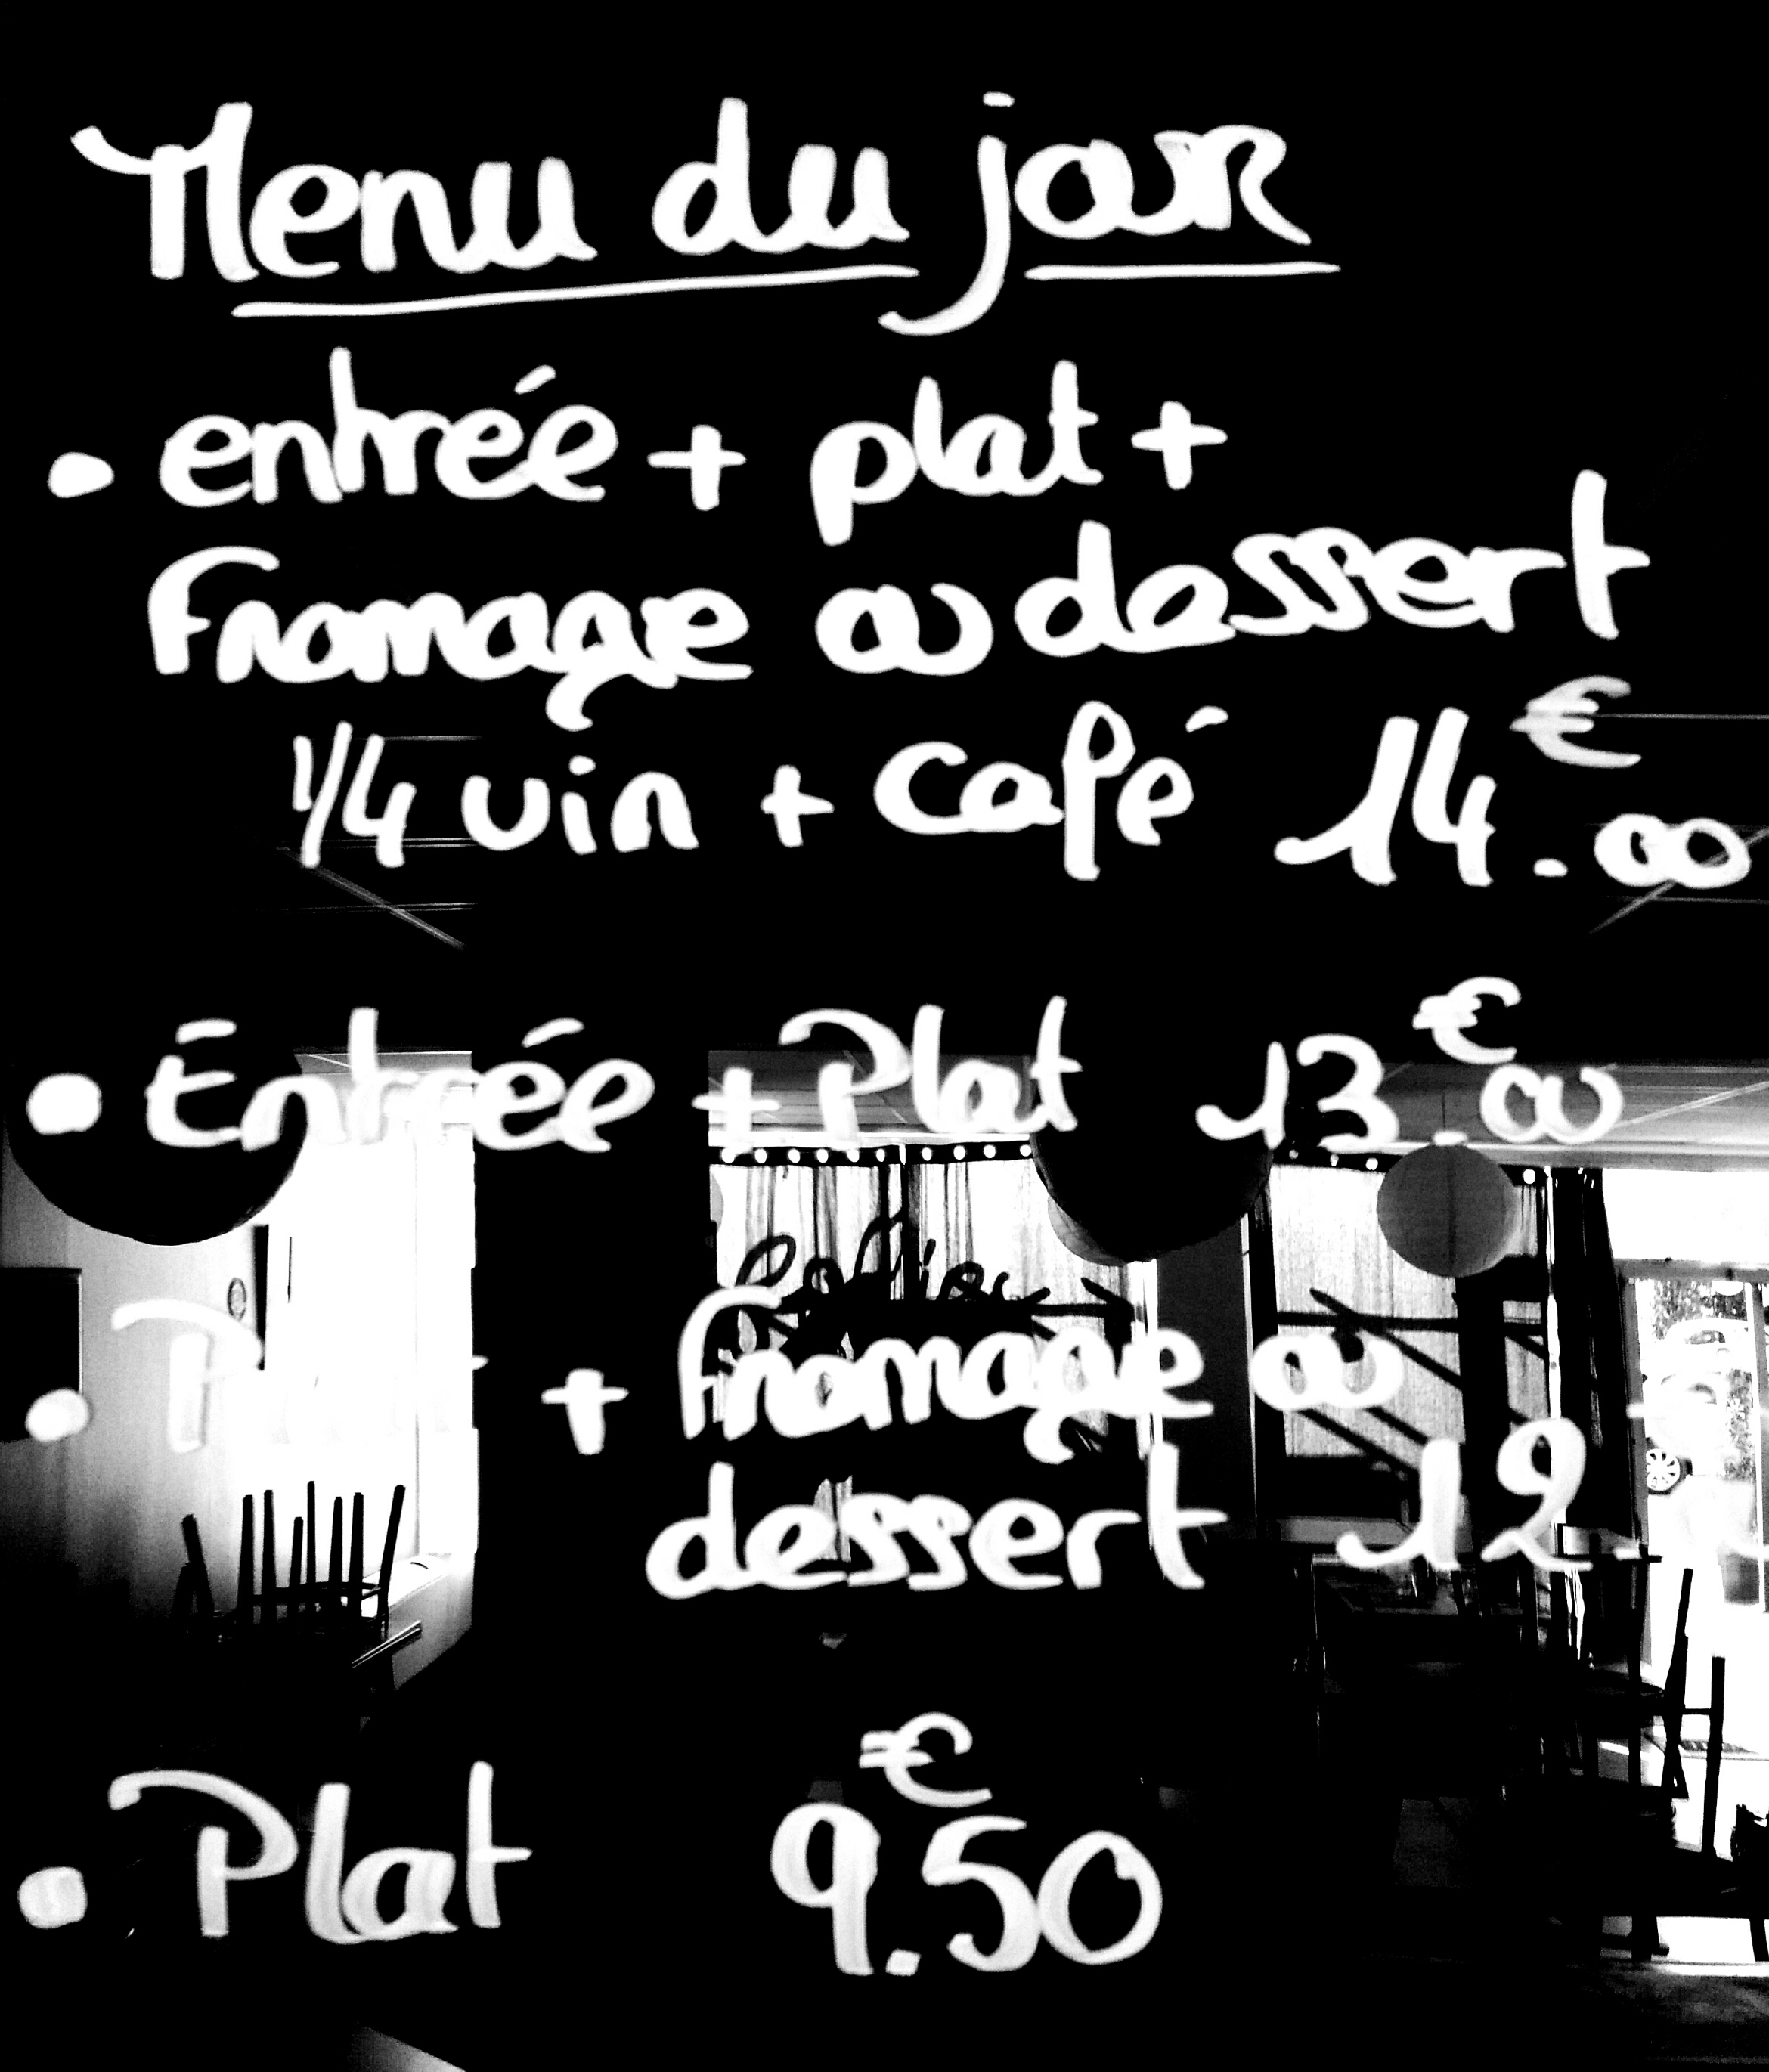 Menu du jour
• entrée + plat +
Fromage ou dessert
1/4 vin + café 14.00€
• Entrée + Plat 13.00€
• + fromage ou
dessert 12.
• Plat 9.50€